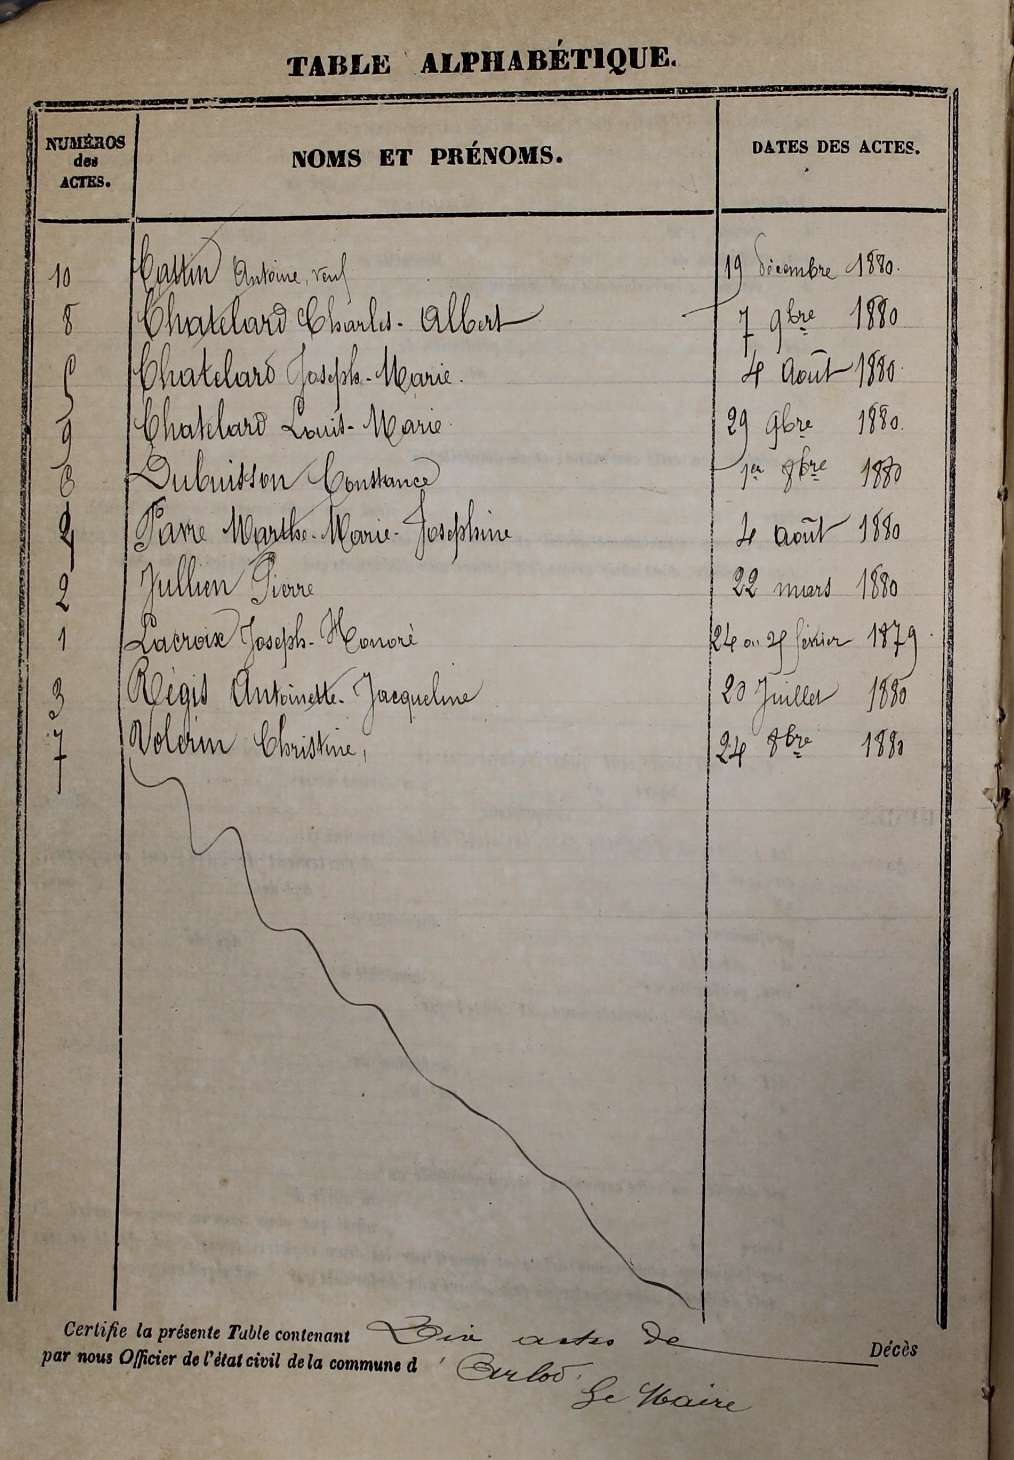 TABLE ALPHABÉTIQUE.
NUMÉROS des ACTES. NOMS ET PRÉNOMS. DATES DES ACTES.
10 Cattin Antoine, veuf 19 décembre 1880.
8 Chatelard Charles-Albert 7 9bre 1880
5 Chatelard Joseph-Marie. 4 Août 1880.
9 Chatelard Louis-Marie. 29 9bre 1880.
6 Dubuisson Constance 1er 8bre 1880
4 Favre Marthe-Marie-Josephine 4 août 1880
2 Jullien Pierre 22 mars 1880
1 Lacroix Joseph-Honoré 24 ou 25 février 1879.
3 Régis Antoinette-Jacqueline 20 Juillet 1880
7 Volerin Christine, 24 8bre 1880
Certifie la présente Table contenant Dix actes de Décès
par nous Officier de l'état civil de la commune d' Arlod.
Le Maire